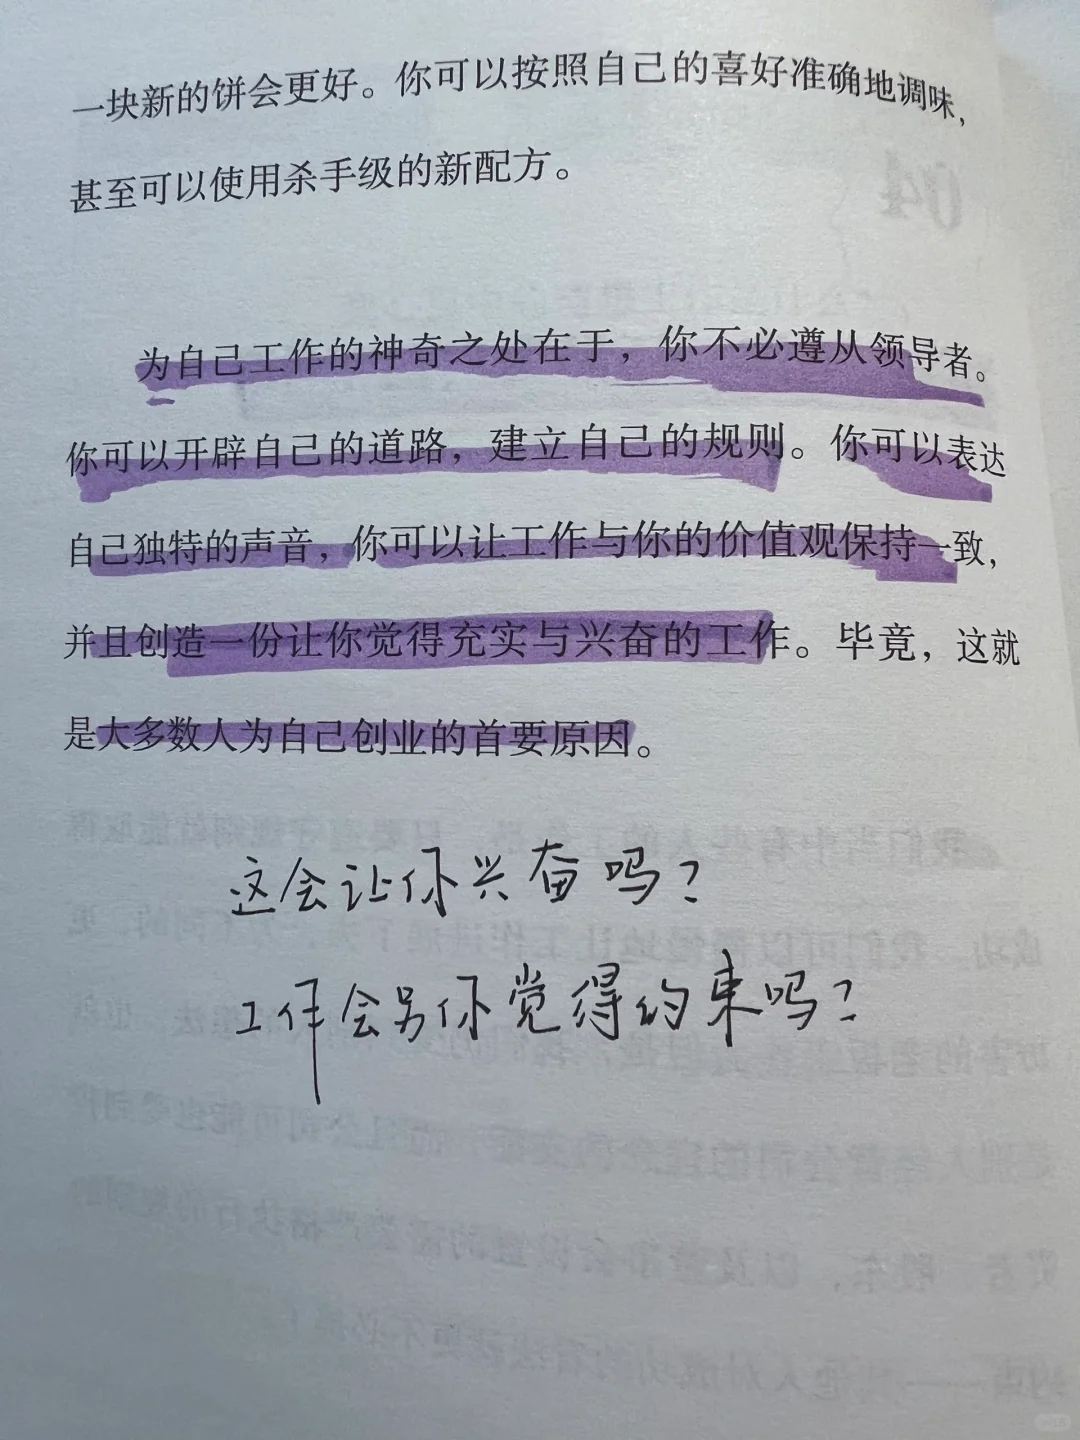 一块新的饼会更好。你可以按照自己的喜好准确地调味，
甚至可以使用杀手级的新配方。
为自己工作的神奇之处在于，你不必遵从领导者。
你可以开辟自己的道路，建立自己的规则。你可以表达
自己独特的声音，你可以让工作与你的价值观保持一致，
并且创造一份让你觉得充实与兴奋的工作。毕竟，这就
是大多数人为自己创业的首要原因。
这会让你兴奋吗？
工作会另你觉得约束吗？